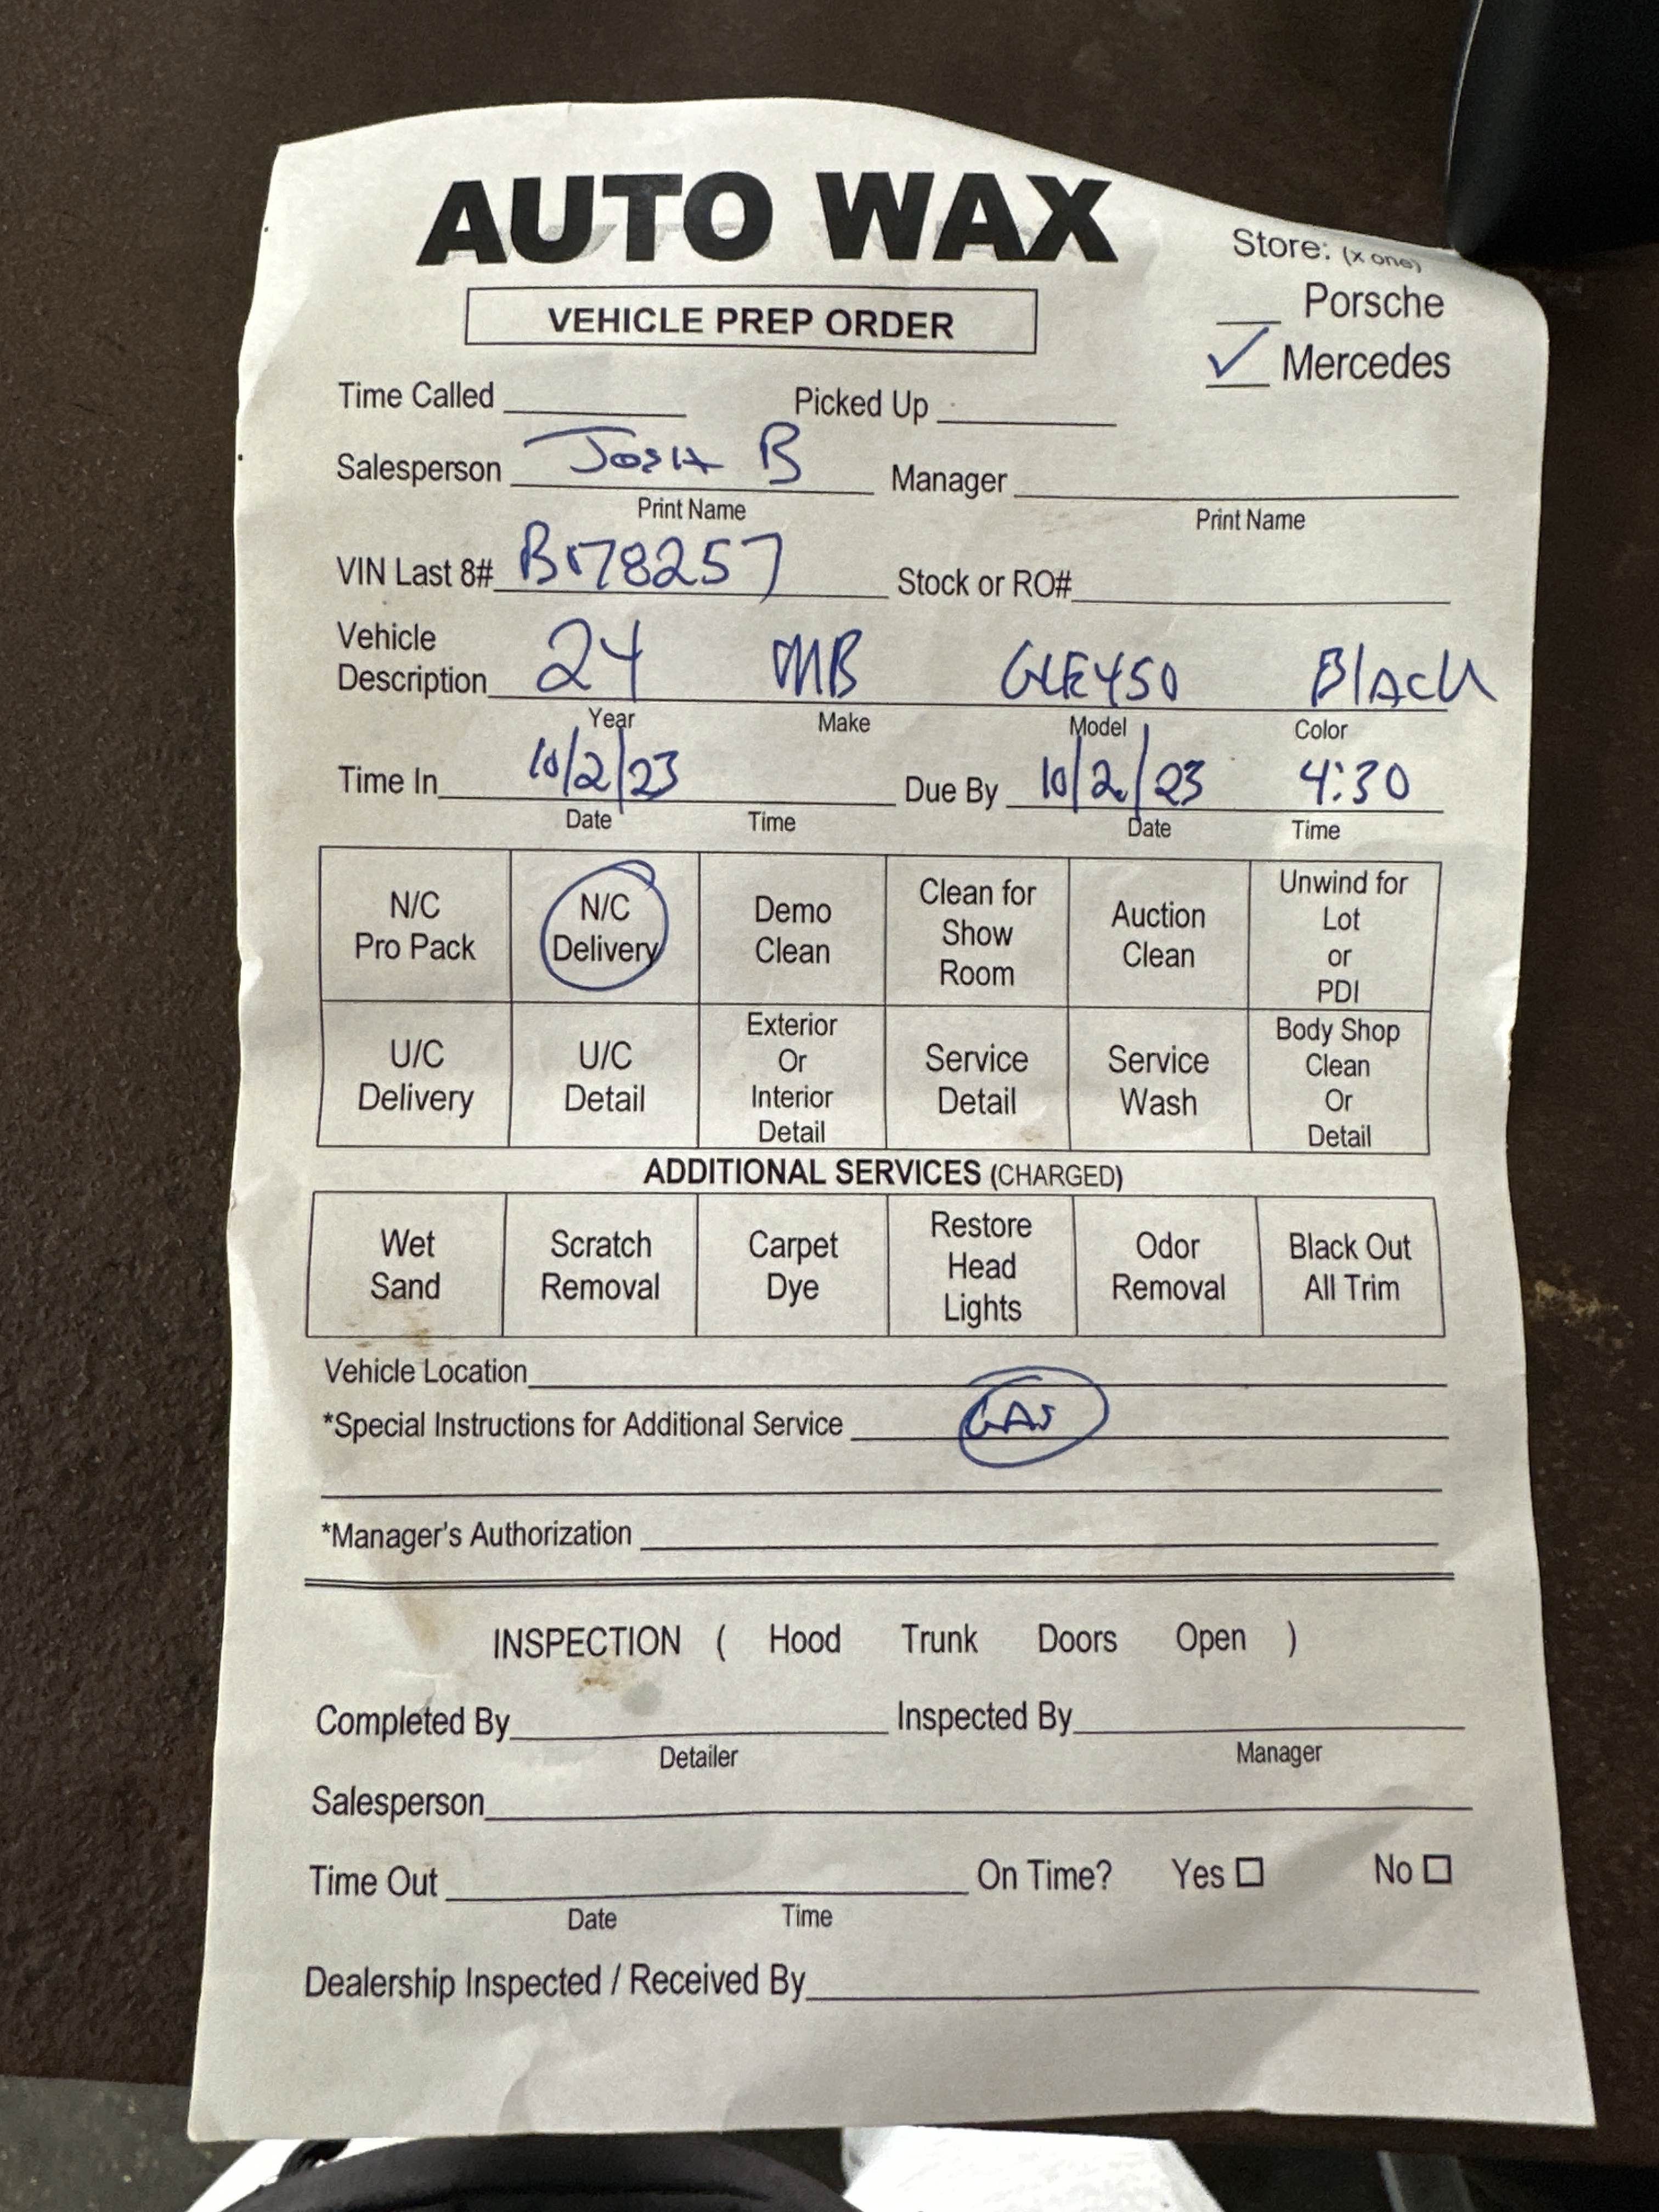 AUTO WAX
Store: (x one)
VEHICLE PREP ORDER
___ Porsche
✓ Mercedes
Time Called ___ Picked Up ___
Salesperson Josh B Manager ___
Print Name Print Name
VIN Last 8# B178257 Stock or RO# ___
Vehicle
Description 24 MB GLE450 Black
Year Make Model Color
Time In 10/2/23 Due By 10/2/23 4:30
Date Time Date Time
N/C Pro Pack N/C Delivery Demo Clean Clean for Show Room Auction Clean Unwind for Lot or PDI
U/C Delivery U/C Detail Exterior Or Interior Detail Service Detail Service Wash Body Shop Clean Or Detail
ADDITIONAL SERVICES (CHARGED)
Wet Sand Scratch Removal Carpet Dye Restore Head Lights Odor Removal Black Out All Trim
Vehicle Location ___
*Special Instructions for Additional Service GAS
*Manager's Authorization ___
INSPECTION ( Hood Trunk Doors Open )
Completed By ___ Inspected By ___
Detailer Manager
Salesperson ___
Time Out ___ On Time? Yes ☐ No ☐
Date Time
Dealership Inspected / Received By ___